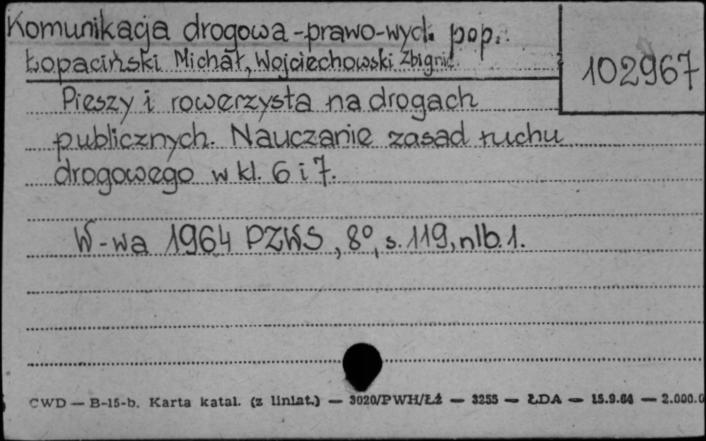 Komunikacja drogowa-prawo-wyd. pop.
Łopaciński Michał, Wojciechowski Zbigniew
102967
Pieszy i rowerzysta na drogach
publicznych. Nauczanie zasad ruchu
drogowego w kl. 6 i 7.
W-wa 1964 PZWS, 8°, s. 119, nlb. 1.
CWD — B-15-b. Karta katal. (z liniat.) — 3020/PWH/Łź — 3255 — ŁDA — 15.9.64 — 2.000.0